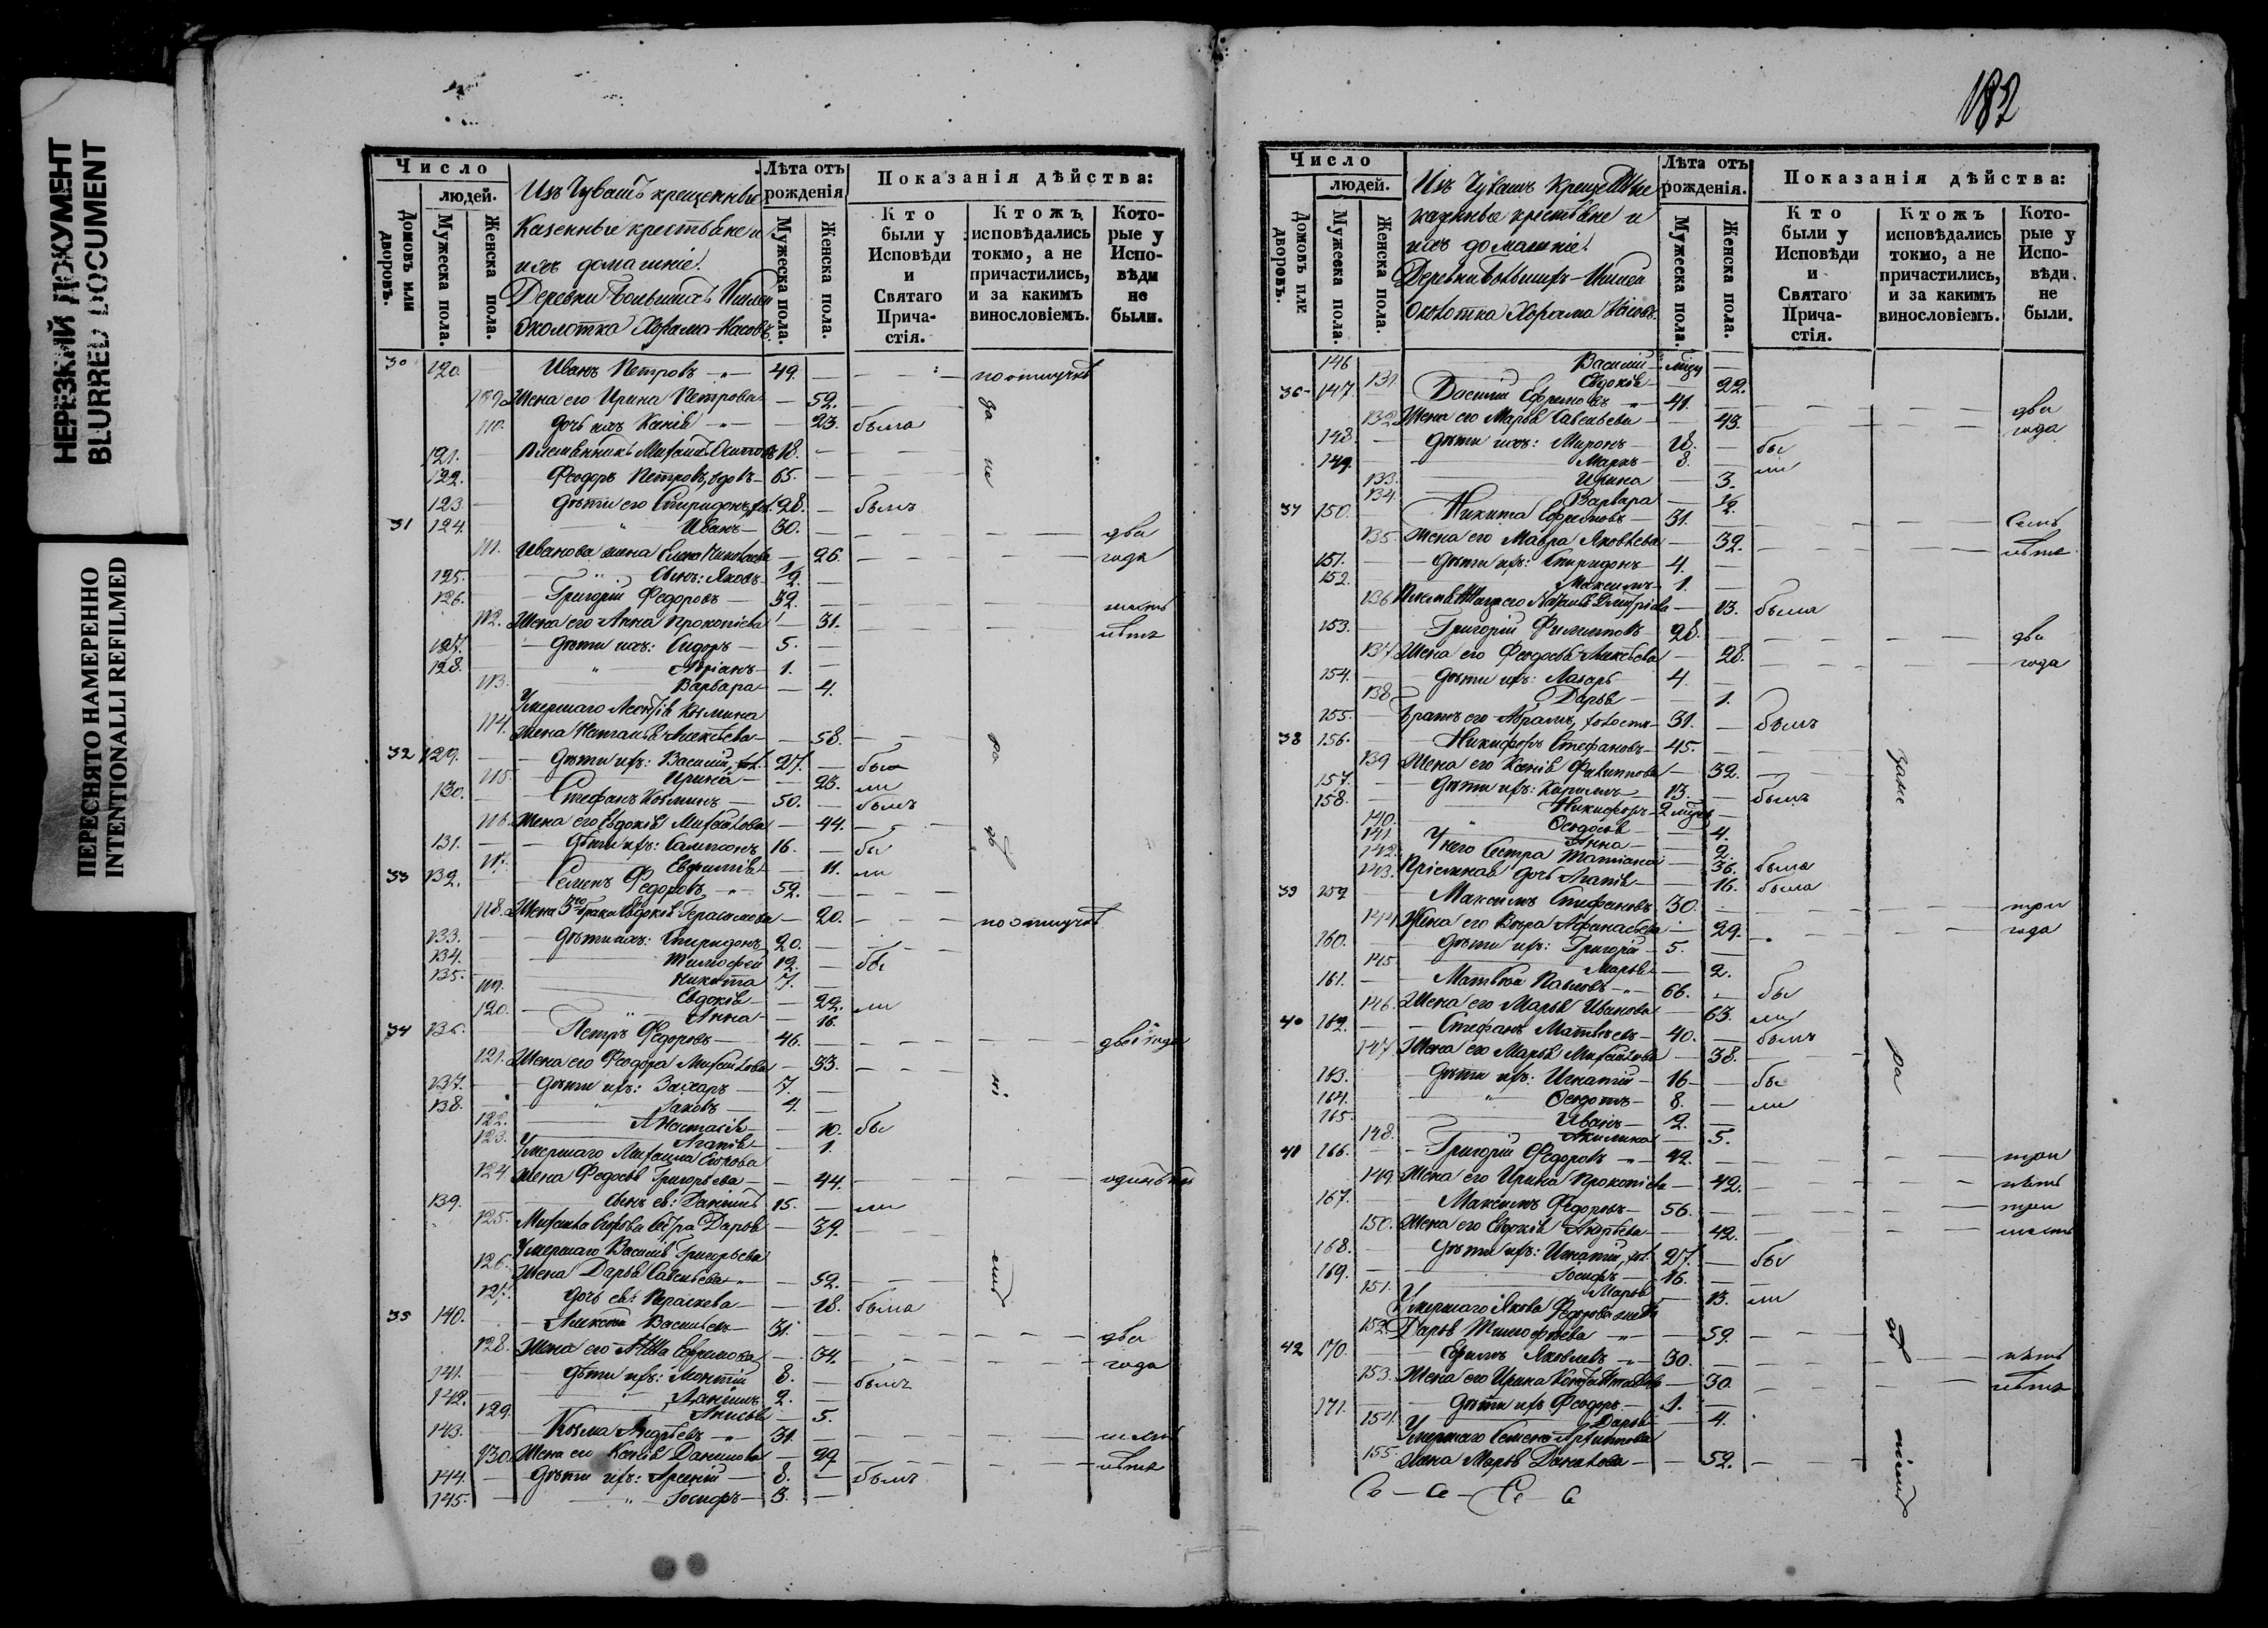 НЕРЕЗКИЙ ДОКУМЕНТ
BLURRED DOCUMENT
ПЕРЕСНЯТО НАМЕРЕННО
INTENTIONALLI REFILMED
Число
людей.
Домовъ или дворовъ.
Мужеска пола.
Женска пола.
Изъ Чувашъ крещенные
Казенные крестьяне и
ихъ домашніе.
Деревни Большихъ
околотка Хорама-Касовъ
Лѣта отъ рожденія
Мужеска пола.
Женска пола.
Показанія дѣйства:
Кто были у Исповѣди и Святаго Причастія.
Ктожъ исповѣдались токмо, а не причастились, и за какимъ винословіемъ.
Которые у Исповѣди не были.
30 120. Иванъ Петровъ 49. по отлучкѣ
109. Жена его Ирина Петрова 52.
110. дочь ихъ Ксенія 23. была
121. Племянникъ Михаилъ 18.
122. Феодоръ Петровъ, вдовъ 65.
123. Дѣти его Спиридонъ, хол. 28. былъ
31 124. Иванъ 30. два
111. Иванова жена Елена Николаева 26. года
125. Сынъ: Яковъ 1/2.
126. Григорій Федоровъ 32. шесть
112. Жена его Анна Прокопіева 31. лѣтъ
127. Дѣти ихъ: Сидоръ 5.
128. 1.
113. Варвара 4.
Умершаго Леонтія Козмина
114. Жена Наталья Алексѣева 58.
32 129. Дѣти ихъ: Василій, хол. 27. бы
115. Ирина 23. ли
130. Стефанъ Козминъ 50. былъ
116. Жена его Евдокія Михайлова 44.
131. Дѣти ихъ: Сампсонъ 16. бы
117. Евфимія 11. ли
33 132. Семенъ Федоровъ 52.
118. Жена 3го брака Евдокія Герасимова 20. по отлучкѣ
133. Дѣти ихъ: Спиридонъ 20.
134. Тимофей 12. бы
135. Никита 7.
119. Евдокія 22. ли
120. Анна 16.
34 136. Петръ Федоровъ 46. два года
121. Жена его Феодора Михайлова 33.
137. Дѣти ихъ: Захаръ 7.
138. Іаковъ 4.
122. Анастасія 10. бы
123. Агапія 1.
Умершаго Михаила Егорова
124. Жена Федосья Григорьева 44.
139. Сынъ ея: Даніилъ 15. ли
125. Михаила Егорова сестра Дарья 39.
Умершаго Василія Григорьева
126. Жена Дарья Савельева 52.
127. Дочь ея: Параскева 18. была
35 140. Алексѣй Васильевъ 31.
128. Жена его Анна Ефремова 34. два
141. Дѣти ихъ: Леонтій 8. былъ года
142. Даніилъ 2.
129. Анисья 5.
143. Козма Андреевъ 31.
130. Жена его Ксенія Данилова 29. лѣтъ
144. Дѣти ихъ: Арсеній 8. былъ
145. Іосифъ 3.
182
Число
людей.
Домовъ или дворовъ.
Мужеска пола.
Женска пола.
Изъ Чувашъ крещенные
казенные крестьяне и
ихъ домашніе.
Деревни Большихъ
околотка Хорама Касовъ.
Лѣта отъ рожденія.
Мужеска пола.
Женска пола.
Показанія дѣйства:
Кто были у Исповѣди и Святаго Причастія.
Ктожъ исповѣдались токмо, а не причастились, и за какимъ винословіемъ.
Которые у Исповѣди не были.
146 Василій
131. Евдокія 22.
36 147. Василій Ефремовъ 41. два
132. Жена его Марья Савельева 43. года
148. Дѣти ихъ: Миронъ 18. бы
149. Маркъ 8. ли
133. Ирина 3.
134. Варвара 1/2.
37 150. Никита Ефремовъ 31. Семь
135. Жена его Мавра Яковлева 32. лѣтъ
151. Дѣти ихъ: Спиридонъ 4.
152. Максимъ 1.
136. Племянница его Наталья Дмитріева 13. была
153. Григорій Филиповъ 28. два
137. Жена его Феодосья Алексѣева 28. года
154. Дѣти ихъ: Лазарь 4.
138. Дарья 1.
155. Братъ его Абрамъ, холостъ 31. былъ
38 156. Никифоръ Стефановъ 45.
139. Жена его Ксенія Филиппова 32.
157. Дѣти ихъ: 13. былъ
158. Никифоръ 2 мѣсяц
140. Феодосья 4.
141. Анна 2.
142. У него Сестра Татіана 36. была
143. Пріемная дочь Агапія 16. была
39 159 Максимъ Стефановъ 30. три
144. Жена его Вѣра Афанасьева 29. года
160. Дѣти ихъ: Григорій 5.
145. Марья 2.
161. Матвей Павловъ 66. бы
146. Жена его Марья Иванова 63. ли
40 162. Стефанъ Матвѣевъ 40. былъ
147. Жена его Марья Михайлова 38.
163. Дѣти ихъ: Игнатій 16. бы
164. Федотъ 8. ли
165. Иванъ 2.
148. Акилина 5.
41 166. Григорій Федоровъ 42. три
149. Жена его Ирина Прокопіева 42.
167. Максимъ Федоровъ 56. три
150. Жена его Евдокія Андреева 42.
168. Дѣти ихъ: Игнатій, хол. 27. бы
169. Іосифъ 16.
151. Марья 13. ли
Умершаго Якова Федорова жена
152. Дарья Тимофѣева 59.
42 170. Ефимъ Яковлевъ 30. пять
153. Жена его Ирина Константинова 30. лѣтъ
171. Дѣти ихъ Феодоръ 1.
154. Дарья 4.
Умершаго Семена Архипова
155. Жена Марья Данилова 52.